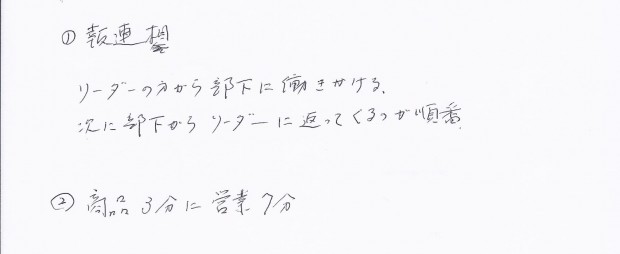 ① 報連相
リーダーの方から部下に働きかける、
次に部下からリーダーに返ってくるのが順番
② 商品3分に営業7分